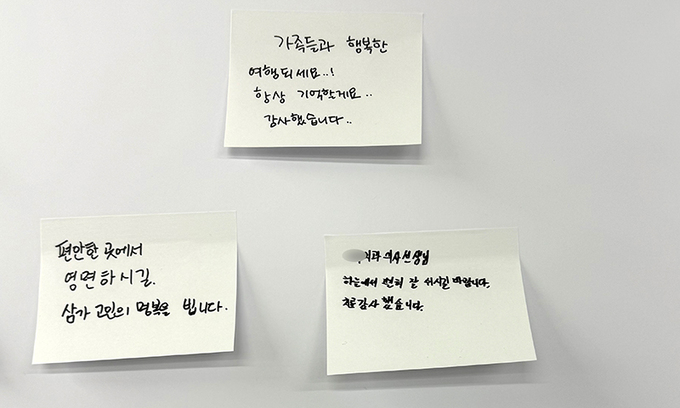 가족들과 행복한
여행되세요..!
항상 기억할게요..
감사했습니다..
편안한 곳에서
영면하시길.
삼가 고인의 명복을 빕니다.
의사선생님
하늘에서 편히 잘 쉬시길 바랍니다.
감사했습니다.